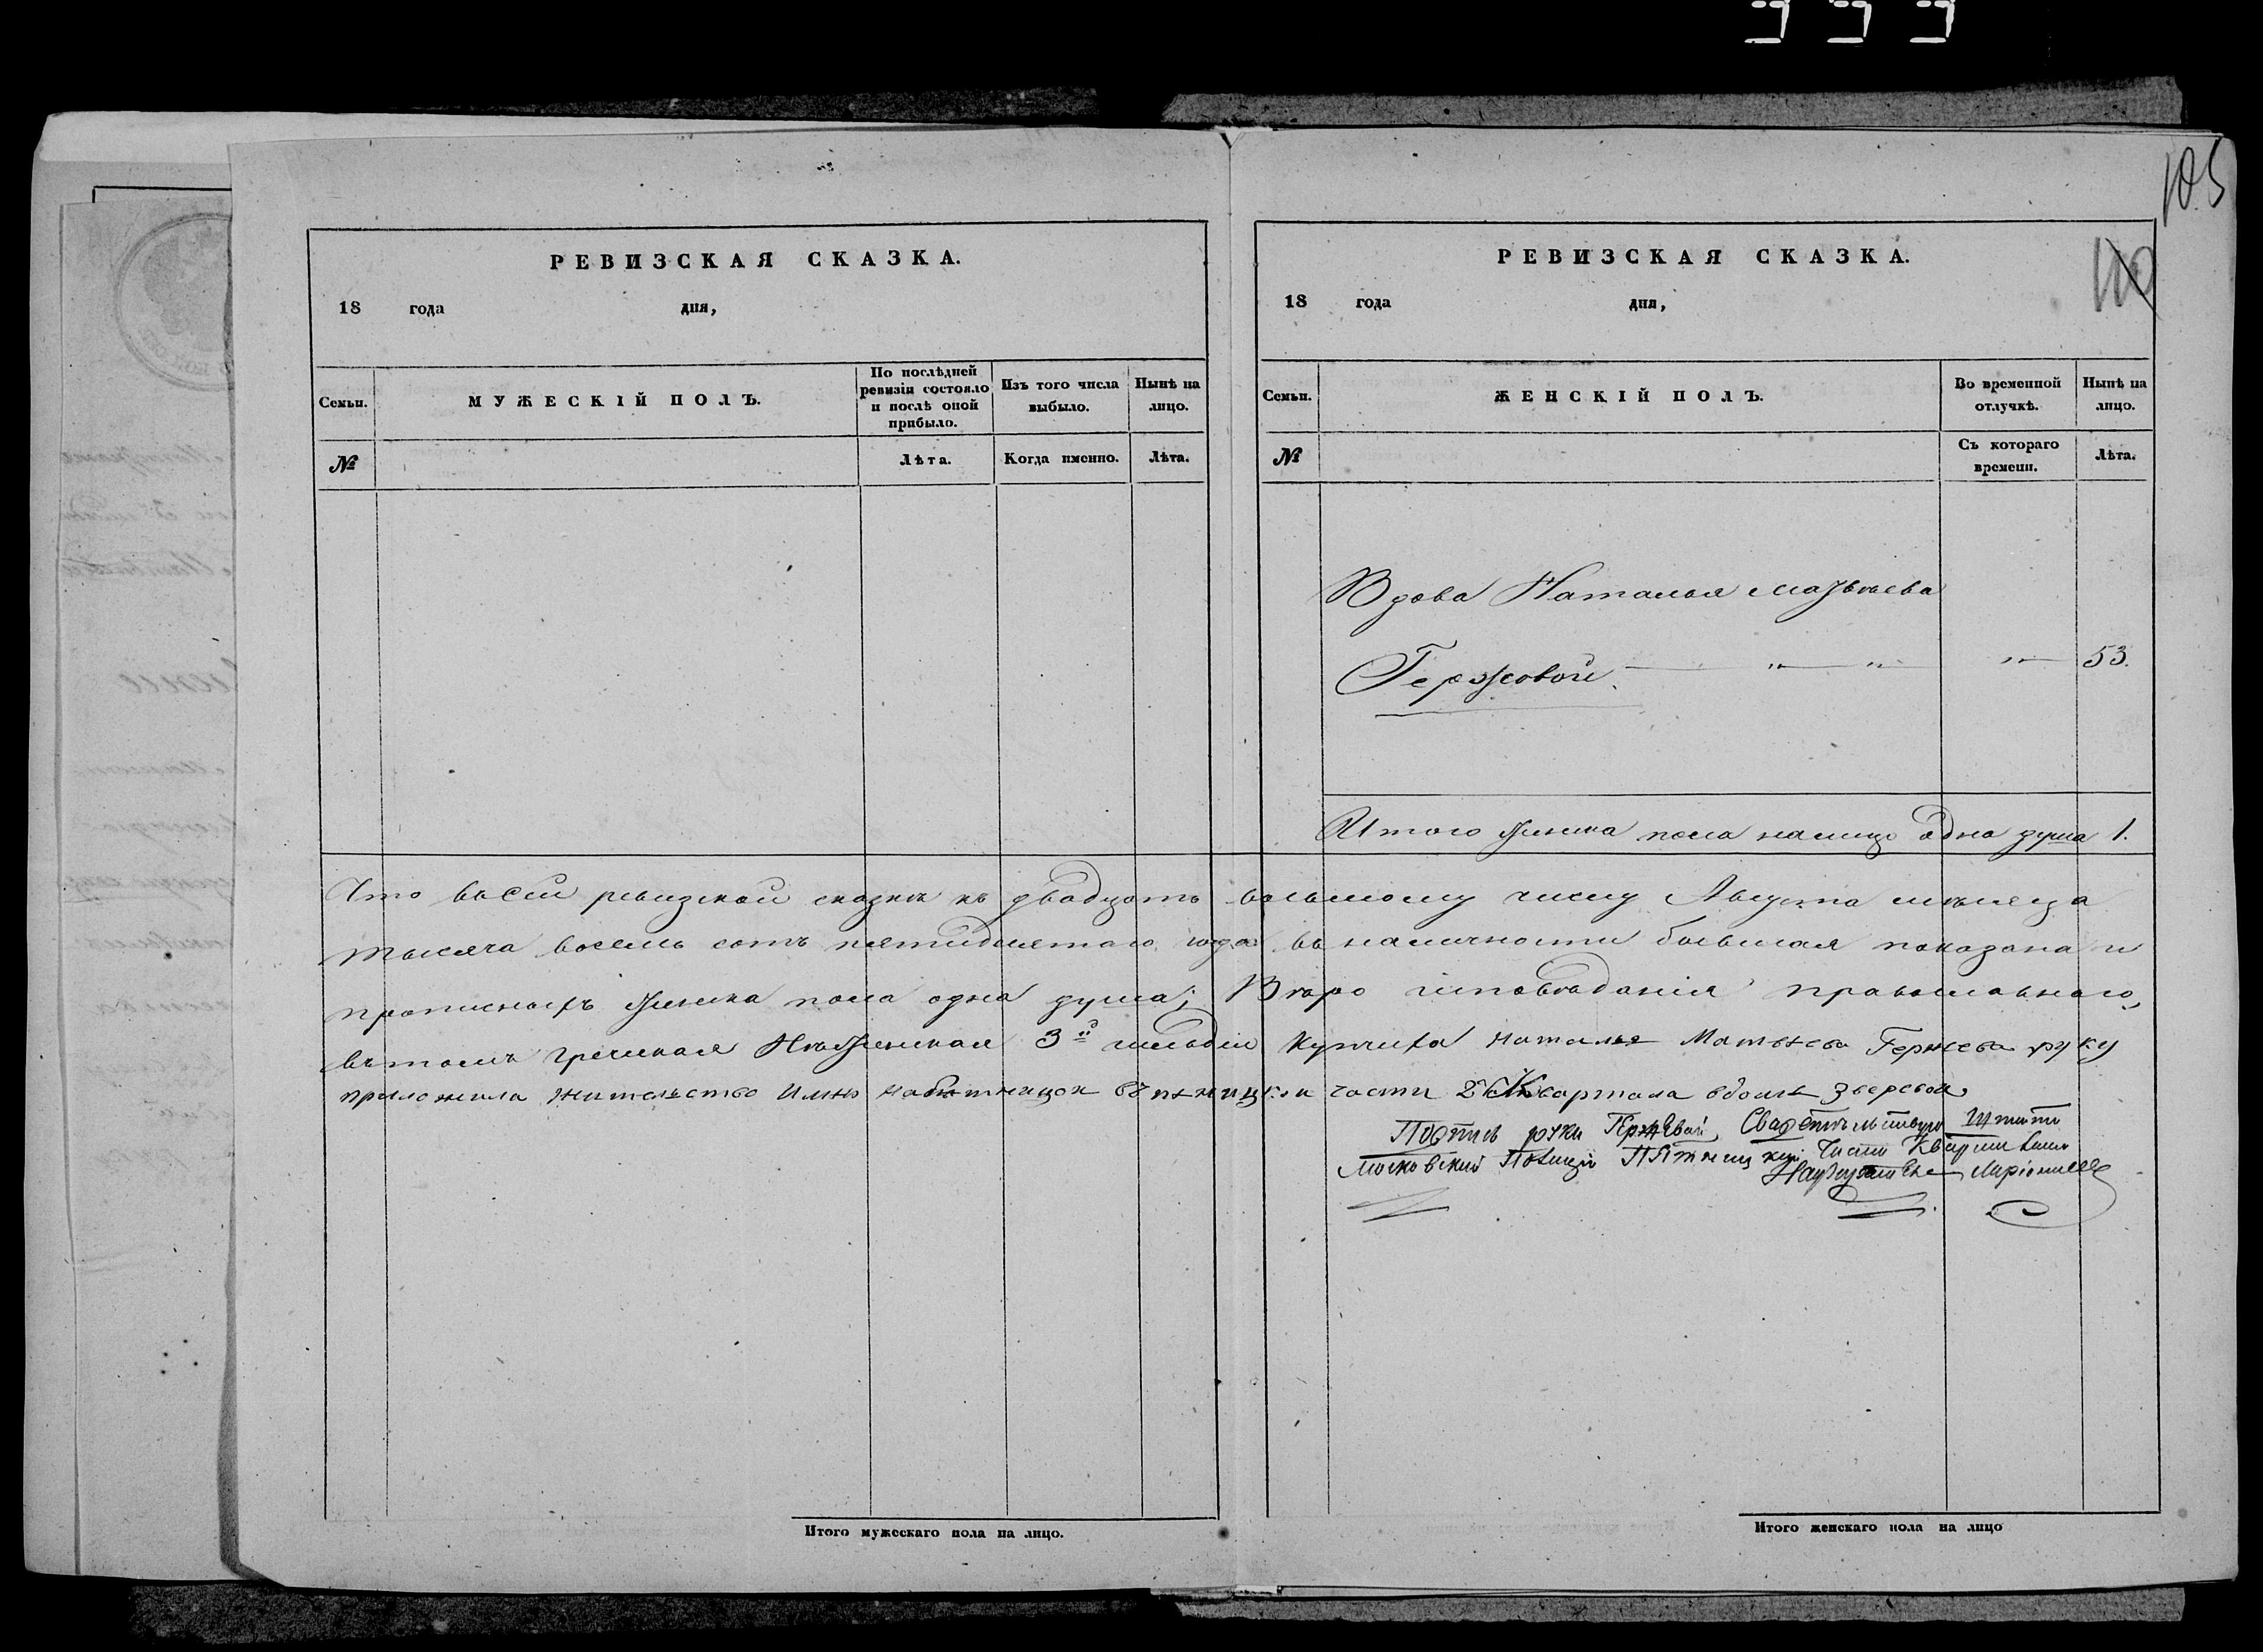 105
110
РЕВИЗСКАЯ СКАЗКА.
18 года дня,
Семьи.
МУЖЕСКІЙ ПОЛЪ.
По послѣдней ревизіи состояло и послѣ оной прибыло.
Изъ того числа выбыло.
Нынѣ на лицо.
№
Лѣта.
Когда именно.
Лѣта.
РЕВИЗСКАЯ СКАЗКА.
18 года дня,
Семьи.
ЖЕНСКІЙ ПОЛЪ.
Во временной отлучкѣ.
Нынѣ на лицо.
№
Съ котораго времени.
Лѣта.
Вдова Наталья Матвѣева
Гержовой 53.
Итого женска пола налицо одна душа 1.
Что въ сей ревизской сказкѣ къ двадцать восьмому числу Августа мѣсяца
тысяча восемь сотъ пятидесятаго года въ наличности бывшая показана и
прописныхъ женска пола одна душа; Вѣро исповѣданія православного,
въ томъ греческая Нѣжинская 3й гильдіи купчиха наталья Матвѣева Гержева руку
приложила жительство имѣю на пятницкой части 2 Квартала вдомѣ Зверевой
Подпись руки Гержевой Свидетельствую Штата
Московской Полиціи Пятницкой Части Квартальный
Надзиратель Ларіоновъ
Итого мужескаго пола на лицо.
Итого женскаго пола на лицо